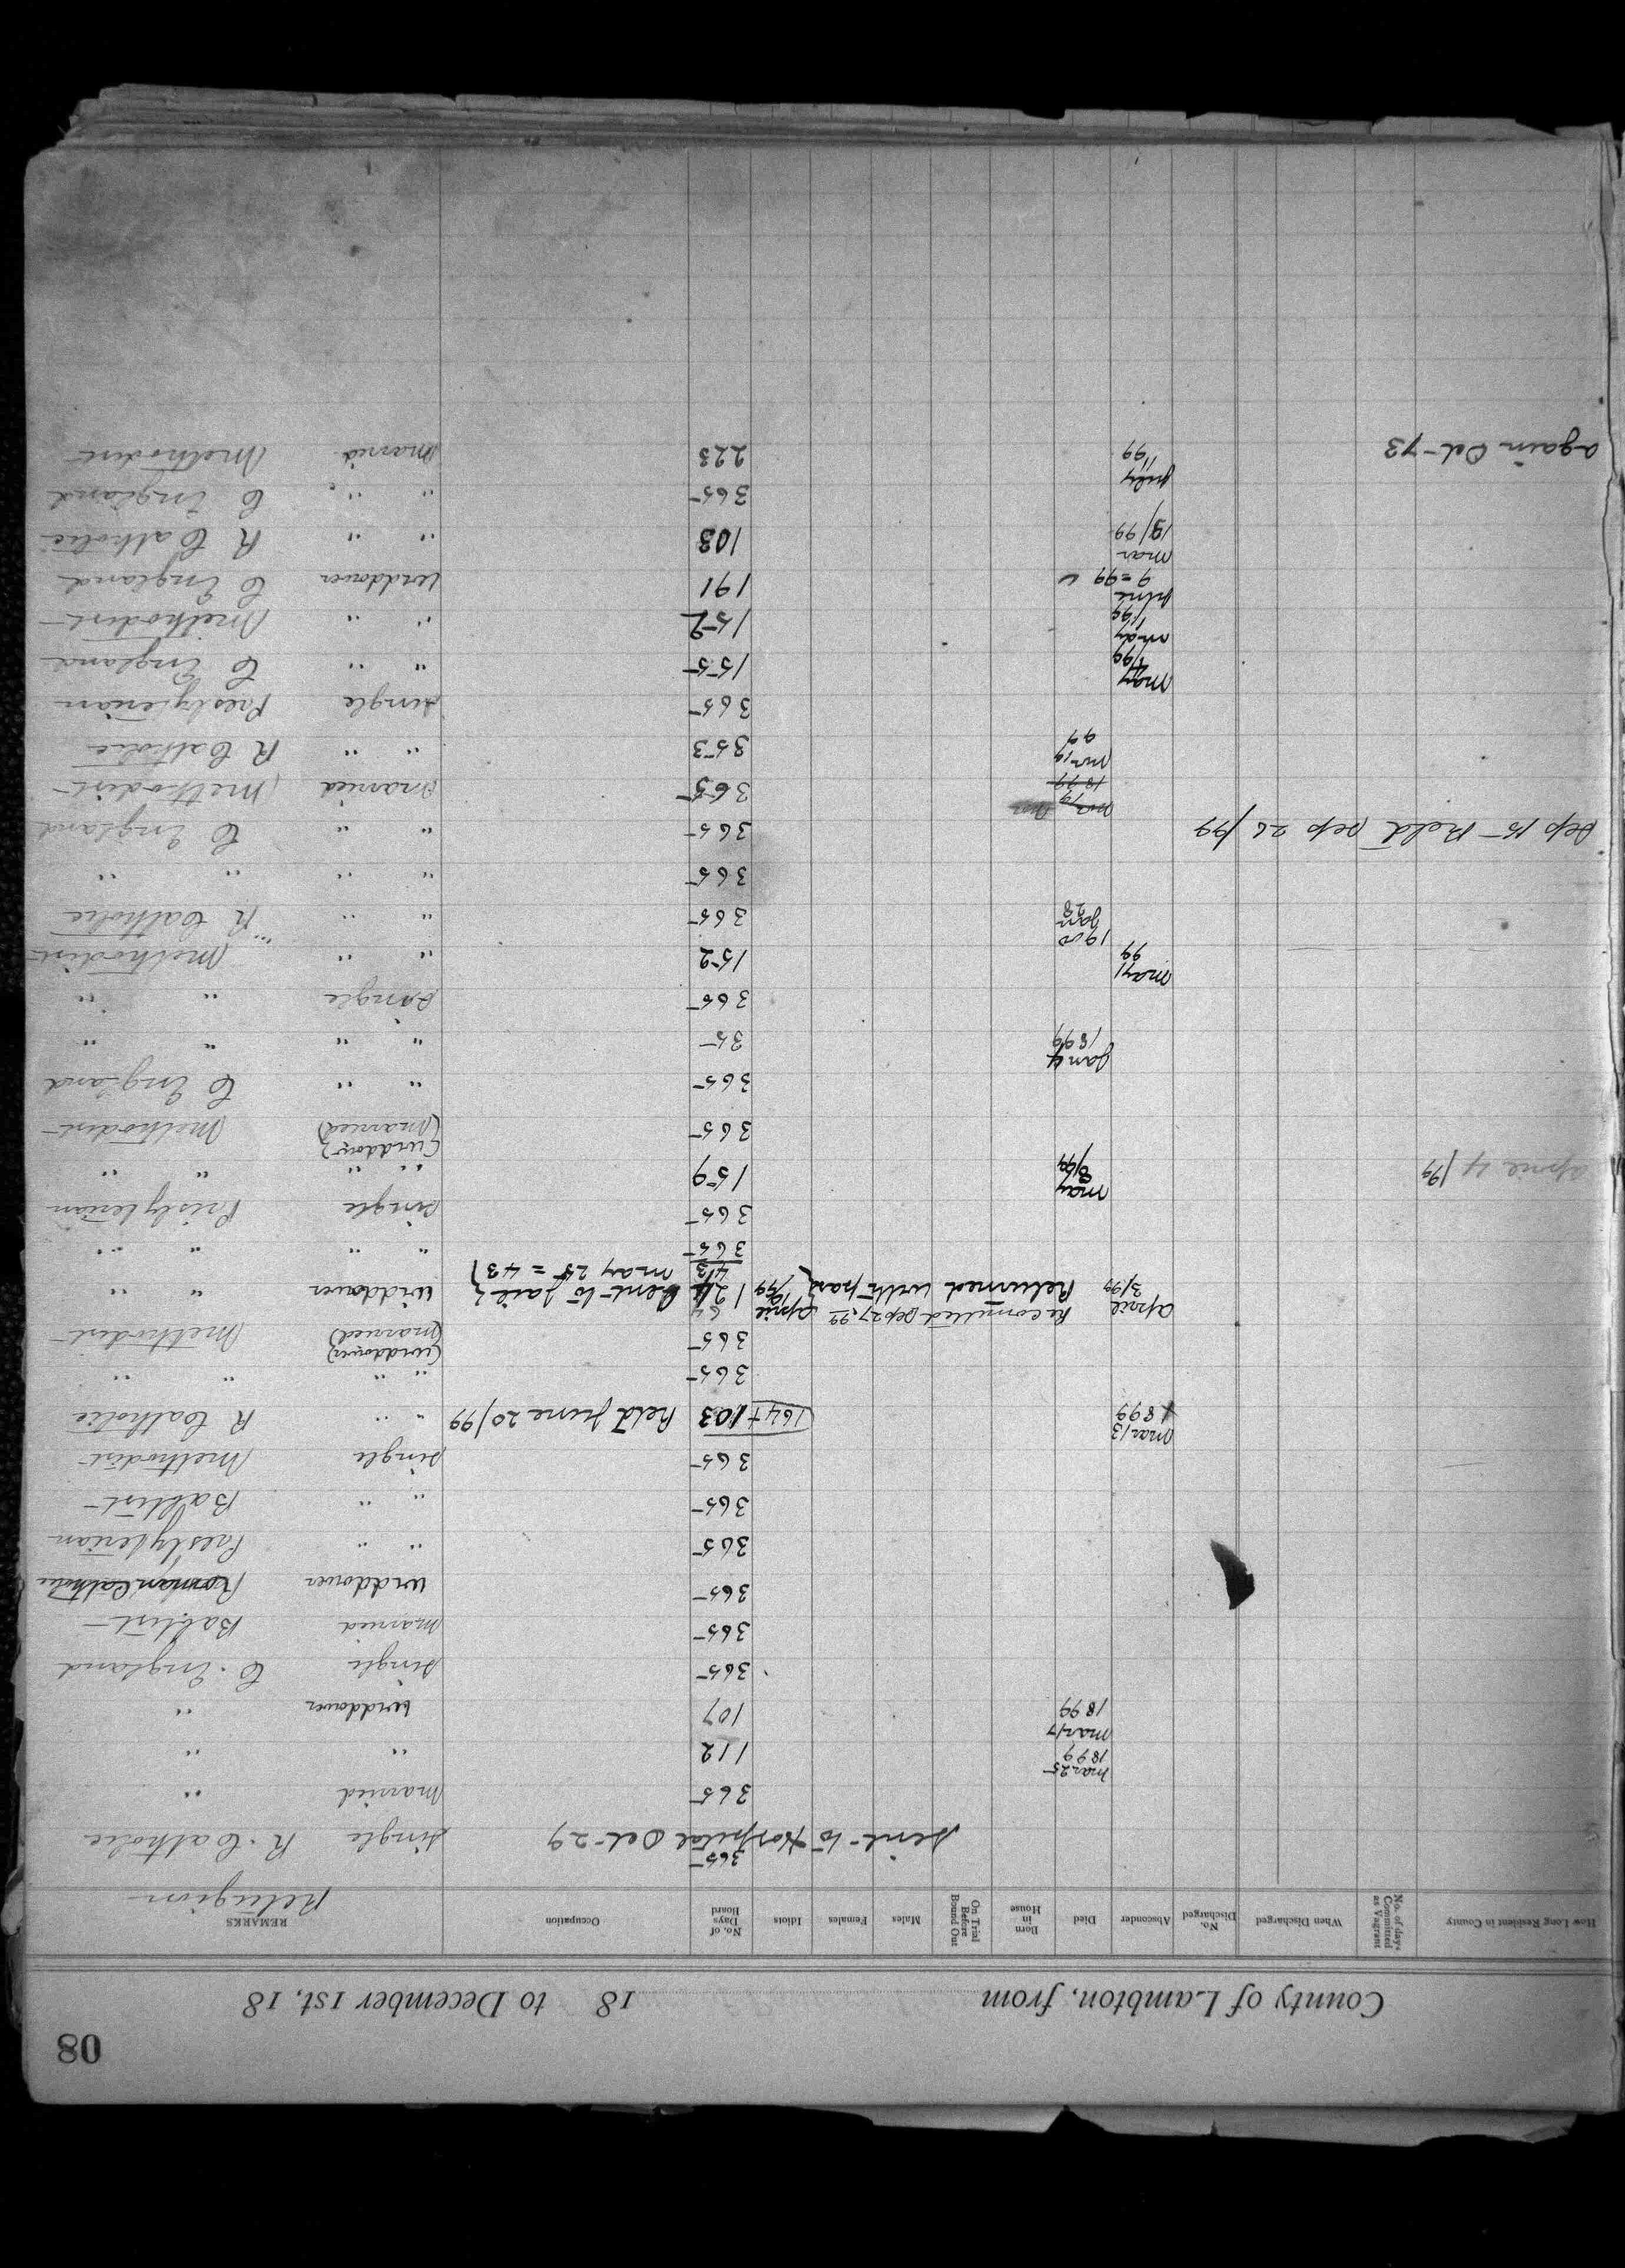 80
County of Lambton, from 18 to December 1st, 18
How Long Resident in County No. of days Committed as Vagrant When Discharged No. Discharged Absconder Died Born in House On Trial Before Bound Out Males Females Idiots No. of Days Board Occupation REMARKS
Religion
sent to Hospital Oct 29 365 single R. Catholic
365 married "
mar 25 1899 112 " "
mar 17 1899 107 widdower "
365 single C. England
365 married Babtist
365 widdower Roman Catholic
365 " " Presbyterian
365 " " Babtist
365 single Methodist
mar 13 1899 164+ 103 Retd June 20/99 " " R Catholic
365 " " " "
365 (widdower) (married) Methodist
april 3/99 Recomitted Sep 27, 99 Returned with pass april /99 43 sent to jail may 25 = 43 widdower " "
365 " " " "
365 single Presbyterian
april 4/99 may 8/99 159 " " " "
365 (widdow) (married) Methodist
365 " " C England
Jan 4 1899 35 " " " "
365 single " "
may 1 99 152 " " Methodist
1900 Jan 28 365 " " R Catholic
365 " " " "
Sep 15 Retd Sep 26/99 365 " " C England
nov 19 1899 365 married Methodist
nov 19 99 353 " " R Catholic
365 single Presbyterian
may 4/99 155 " " C England
may 1/99 152 " " Methodist
June 9=99 191 widdower C England
mar 13/99 103 " " R Catholic
365 " " C England
again Oct-73 July 11, 99 223 married Methodist